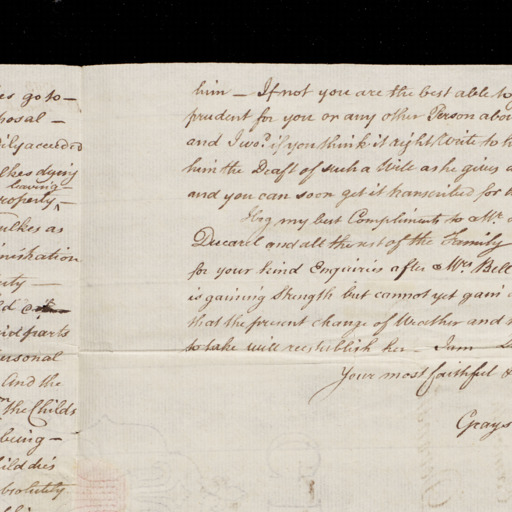 es go to —
posal —
ily acceeded
lkes dying
leaving
roperty
ulkes as
inistration
rty —
ld
id parts
ersonal
And the
the Childs
being —
hild dies
bsolutely
him — If not you are the best able to
prudent for you or any other Person abo
and I wo.d if you think it right Write to h
him the Draft of such a Will as he gives
and you can soon get it transcribed for
I beg my best Compliments to Mr.
Ducarel and all the rest of the Family
for your kind Enquiries after Mrs Bell
is gaining Strength but cannot yet gain
that the present change of Weather and
to take will reestablish her — I am
Your most faithful
Grays